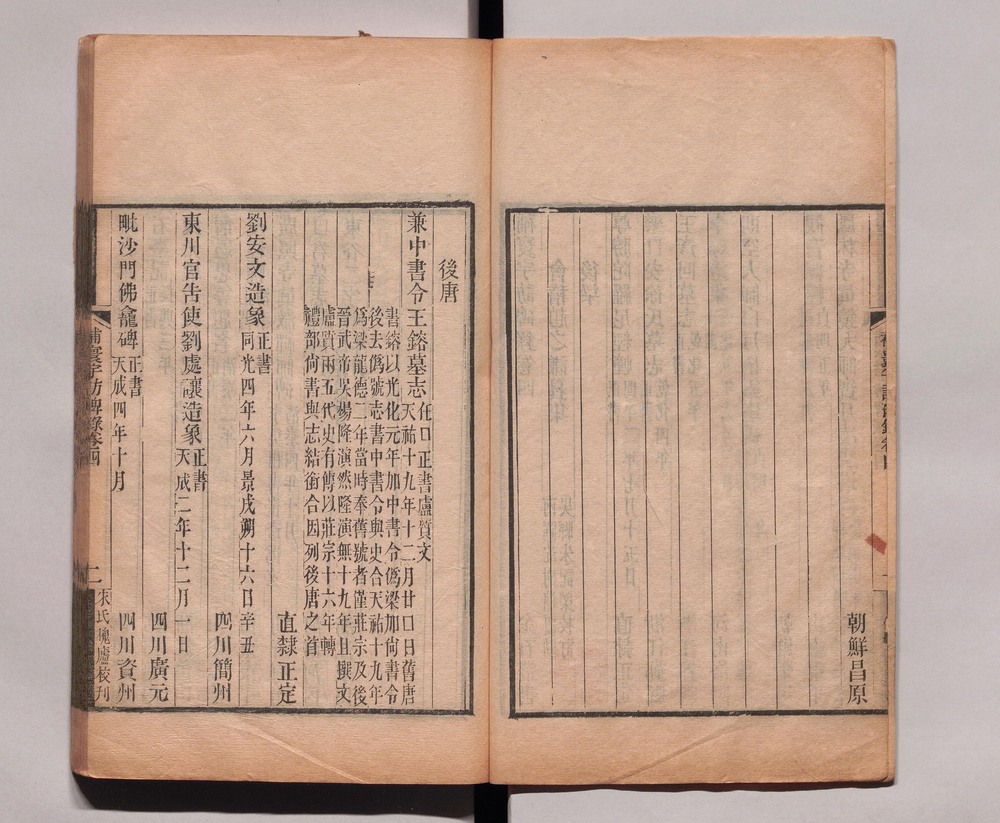 朝鮮昌原
後唐
兼中書令王鎔墓志
任口正書盧質文
天祐十九年十二月廿口日舊唐
書鎔以光化元年加中書令僞梁加尚書令
後去僞號志書中書令與史合天祐十九年
爲梁龍德二年當時奉舊號者僅莊宗及後
晉武帝吳楊隆演然隆演無十九年且撰文
盧質兩五代史有傳以莊宗十六年轉
禮部尙書與志結銜合因列後唐之首
直隸正定
劉安文造象
正書
同光四年六月景戌朔十六日辛丑
四川簡州
東川官告使劉處讓造象
正書
天成二年十二月一日
四川廣元
毗沙門佛龕碑
正書
天成四年十月
四川資州
補寰宇訪碑錄卷四
二
朱氏槐廬校刊